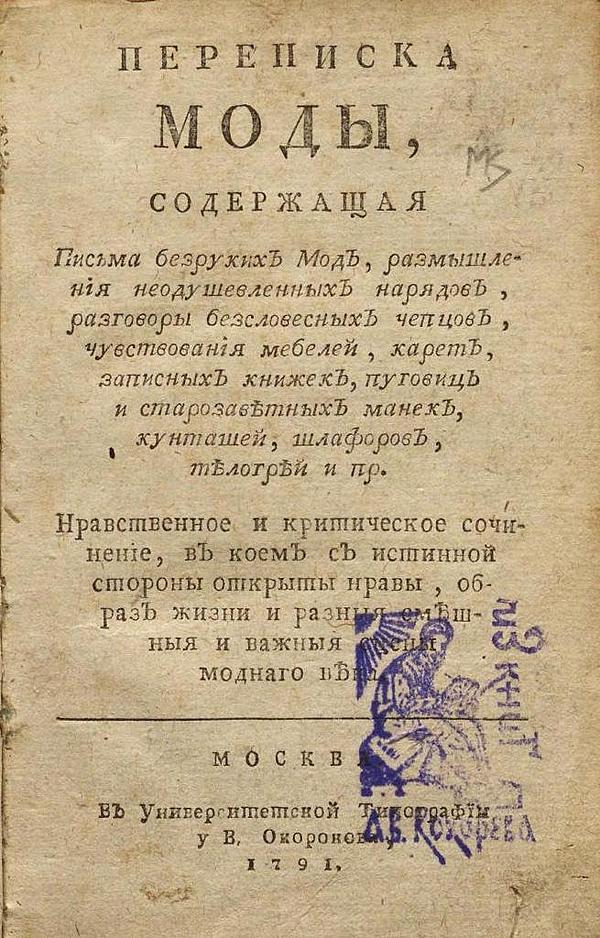 ПЕРЕПИСКА
МОДЫ,
СОДЕРЖАЩАЯ
Письма безрукихЪ МодЪ, размышле-
нія неодушевленныхЪ нарядовЪ,
разговоры безсловесныхЪ чепцовЪ,
чувствованія мебелей, каретЪ,
записныхЪ книжекЪ, пуговицЪ
и старозавѣтныхЪ манекЪ,
кунташей, шлафоровЪ,
тѣлогрѣй и пр.
Нравственное и критическое сочи-
неніе, вЪ коемЪ сЪ истинной
стороны открыты нравы, об-
разЪ жизни и разныя смѣш-
ныя и важныя сцены
моднаго вѣка.
МОСКВА
ВЪ Университетской Типографіи
у В. Окорокова,
1791.
Из книг
А.В. Кокорева